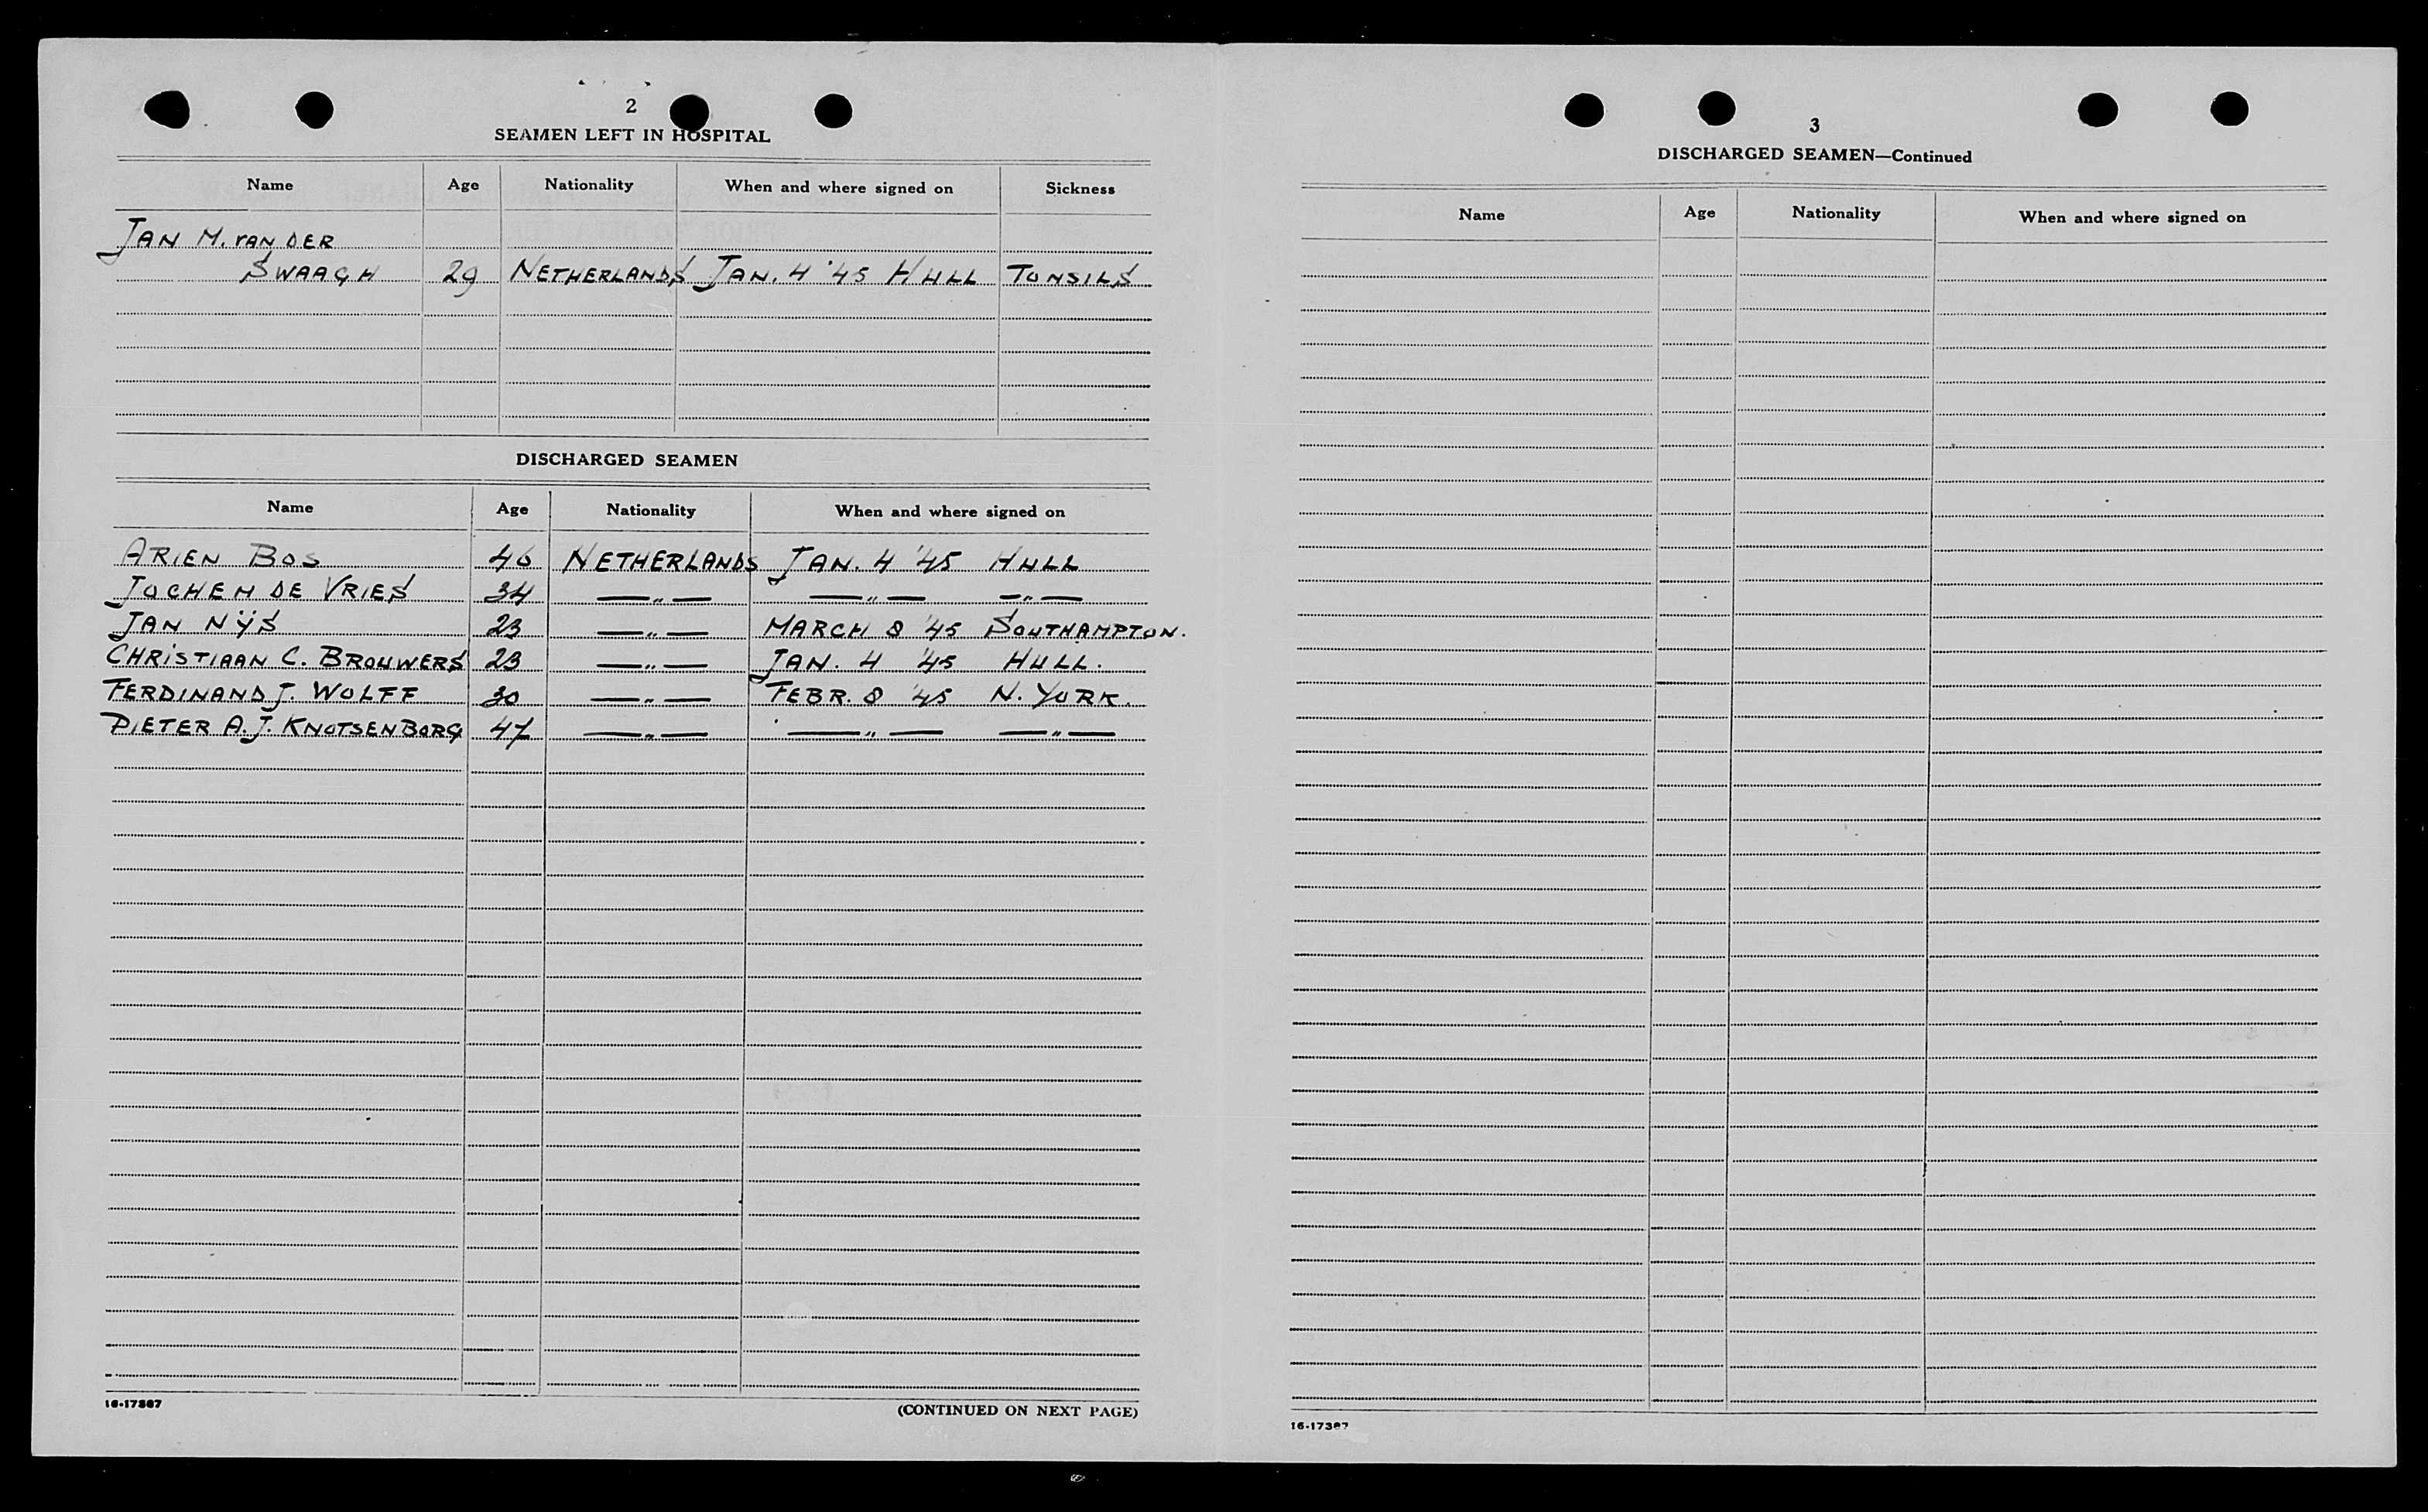 2
SEAMEN LEFT IN HOSPITAL
Name Age Nationality When and where signed on Sickness
JAN M. VAN DER
SWAAGH 29 NETHERLANDS JAN. 4 '45 HULL TONSILS
DISCHARGED SEAMEN
Name Age Nationality When and where signed on
ARIEN BOS 46 NETHERLANDS JAN. 4 '45 HULL
JOCHEM DE VRIES 34 —„— —„— —„—
JAN NŸS 23 —„— MARCH 8 '45 SOUTHAMPTON.
CHRISTIAAN C. BROUWERS 23 —„— JAN. 4 '45 HULL.
FERDINAND J. WOLFF 30 —„— FEBR. 8 '45 N. YORK.
PIETER A. J. KNOTSENBORG 47 —„— —„— —„—
16-17387
(CONTINUED ON NEXT PAGE)
3
DISCHARGED SEAMEN—Continued
Name Age Nationality When and where signed on
16-17387